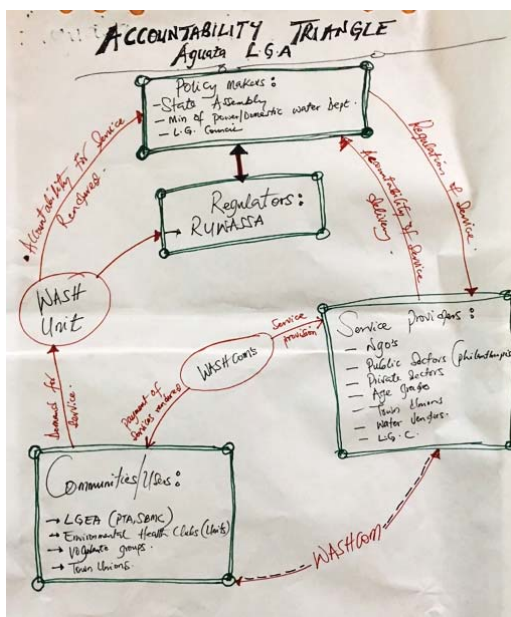 ACCOUNTABILITY TRIANGLE
Aguata L.G.A
Policy makers:
- State Assembly
- Min of power/Domestic water Dept.
- L.G. Council
Regulators:
→ RUWASSA
Accountability for Service
Rendered.
Regulation of Service.
Accountability of Service
delivery.
WASH
Unit
WASHCOMs
Service
provision
payment of
Services rendered
Demand for
Service.
Service Providers:
- Ngo's
- Public Sectors (philanthropis
- Private Sectors
- Age grades
- Town Unions
- Water Vendors.
- L.G.C.
Communities/Users:
→ LGEA (PTA, SBMC)
→ Environmental Health Clubs (Units)
→ Vigilante groups.
→ Town Unions.
WASHCOM